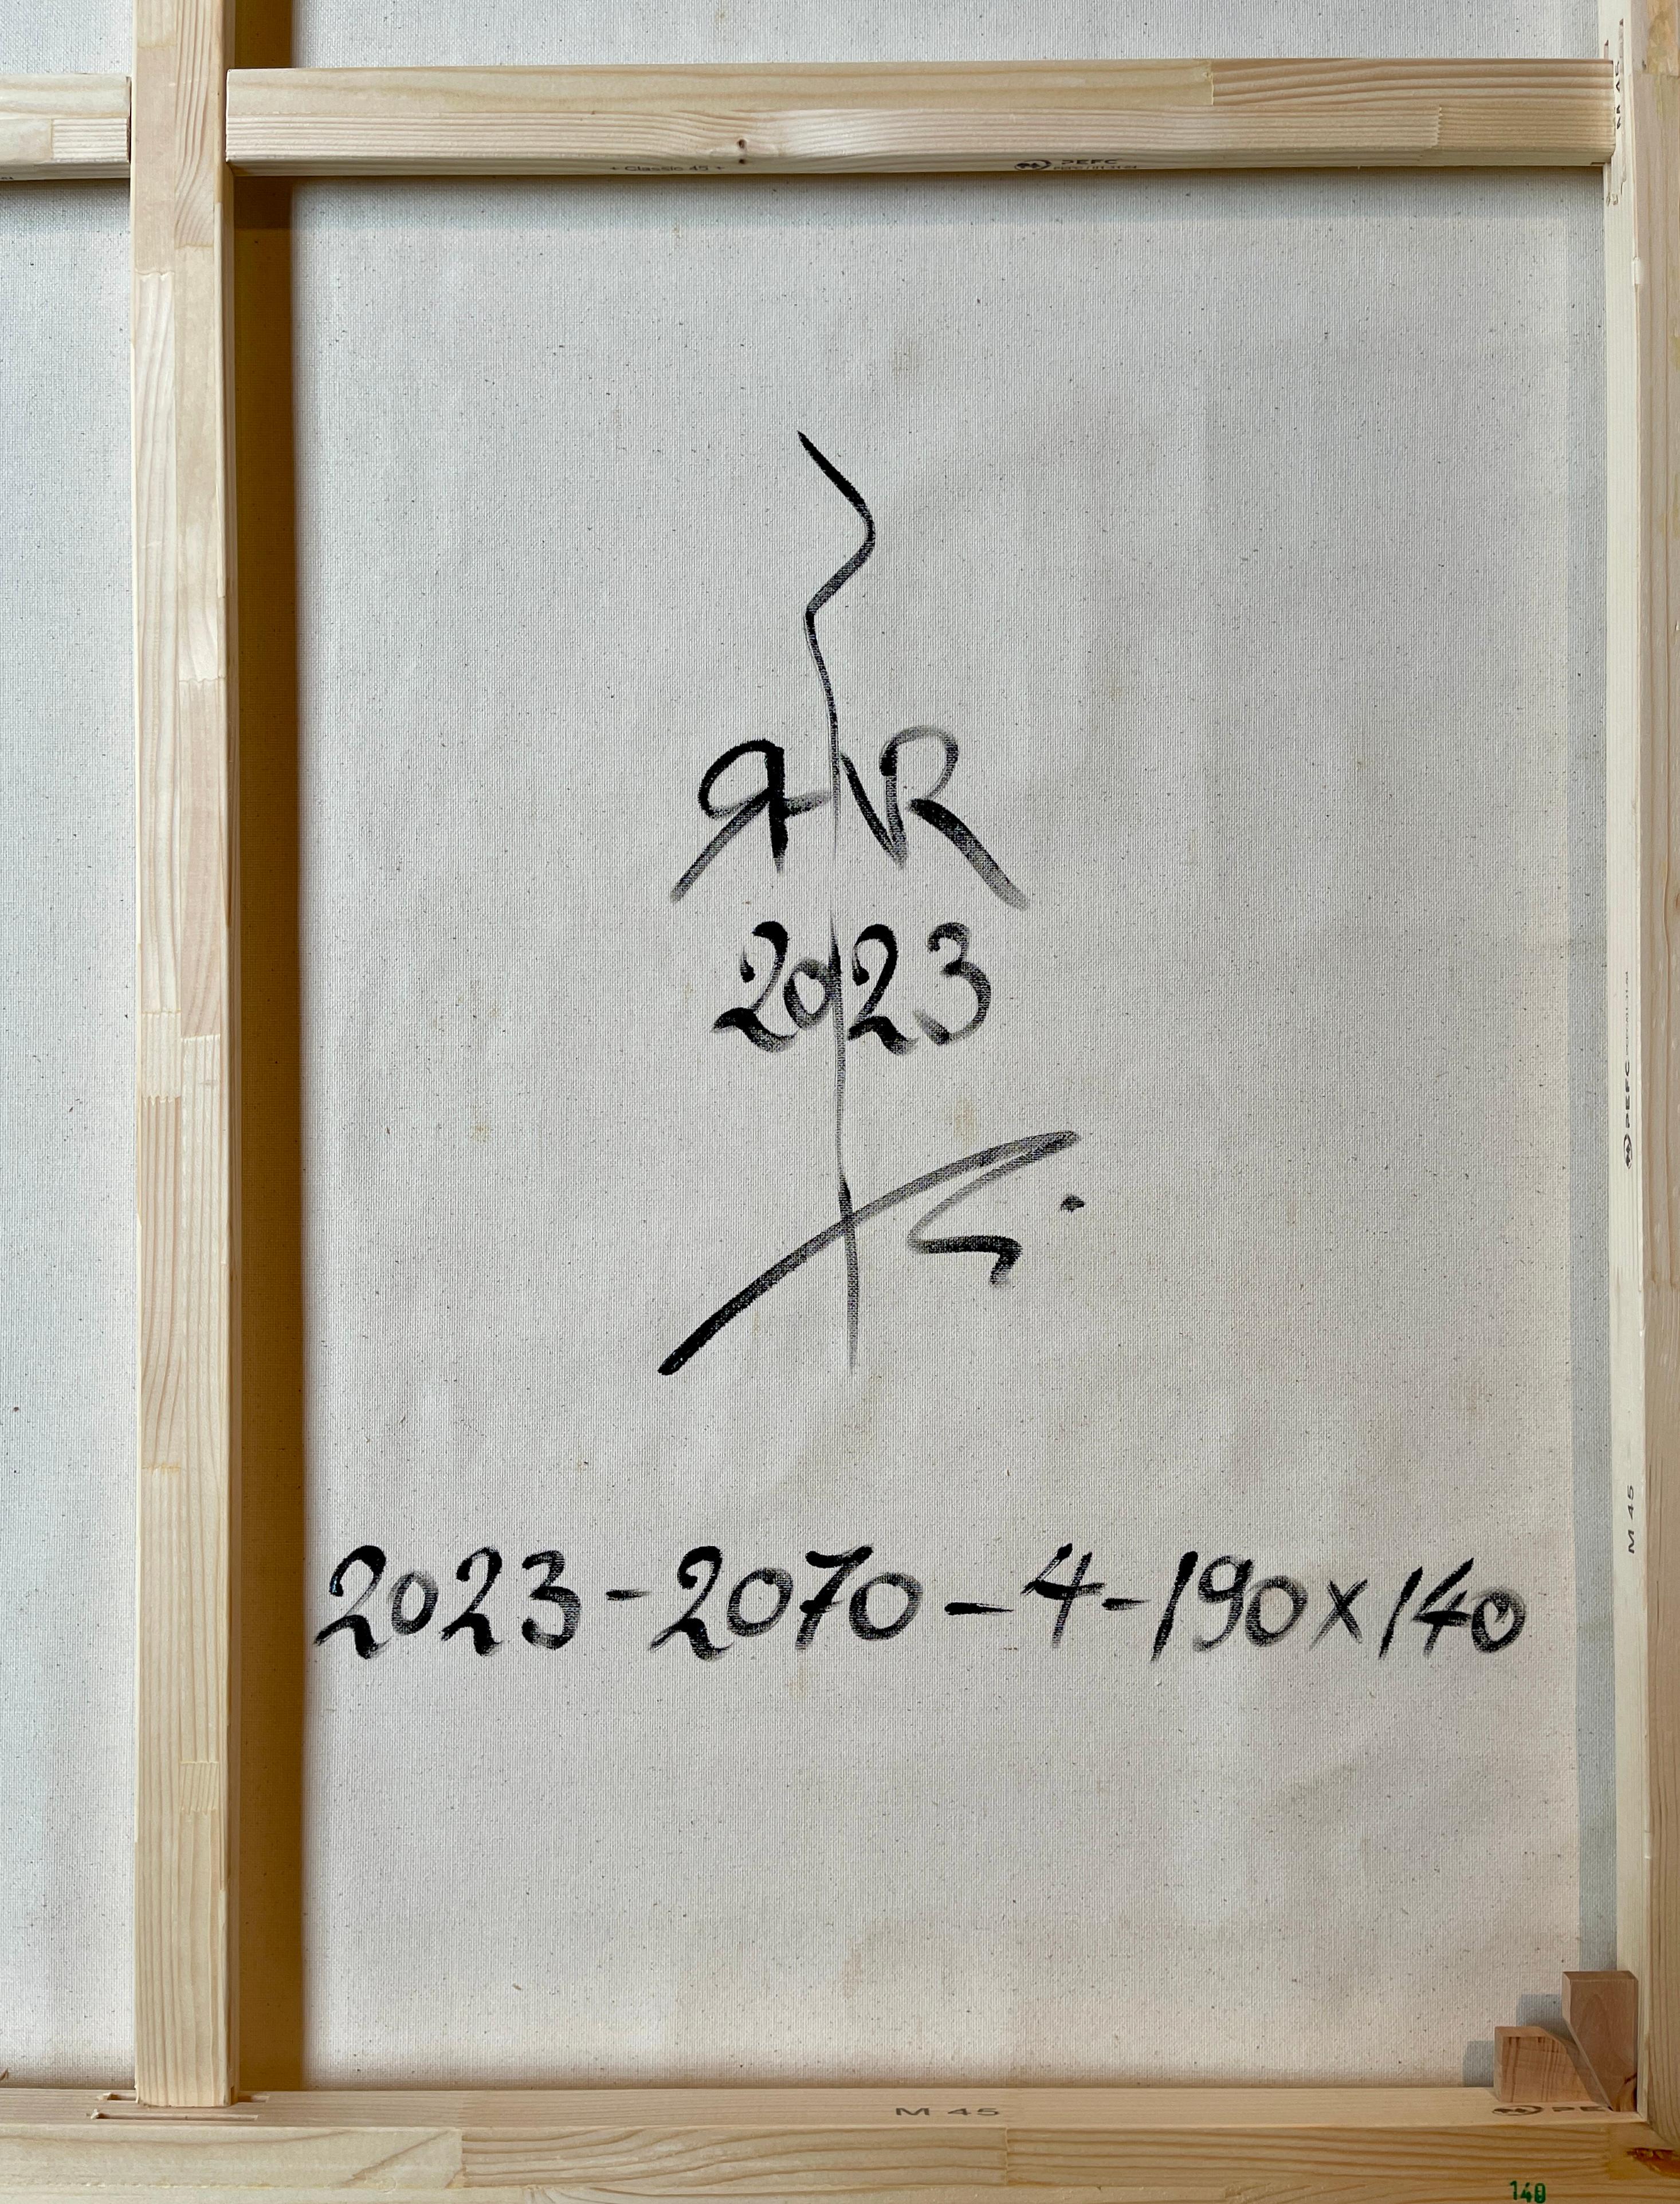 + Classic 45 + PEFC
2023
2023-2070-4-190x140
PEFC
M 45
M 45
140